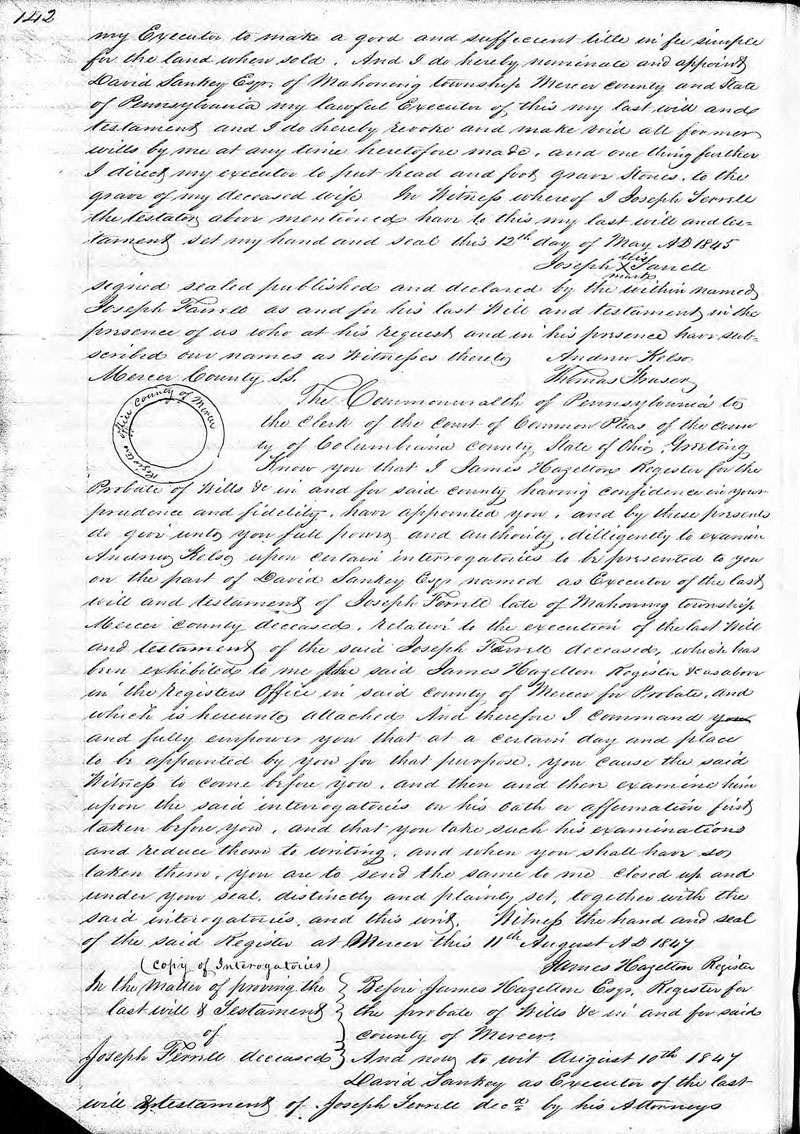 142
my Executor to make a good and sufficient title in fee simple
for the land when sold. And I do hereby nominate and appoint
David Sankey Esqr. of Mahoning township Mercer county and State
of Pennsylvania my lawful Executor of this my last will and
testament and I do hereby revoke and make void all former
wills by me at any time heretofore made, and one thing further
I direct my executor to put head and foot grave stones, to the
grave of my deceased wife. In Witness whereof I Joseph Ferrell
the testator above mentioned have to this my last will and tes=
tament set my hand and seal this 12th day of May AD 1845
Joseph his X mark Farrell
signed sealed published and declared by the within named
Joseph Farrell as and for his last Will and testament in the
presence of us who at his request and in his presence have sub=
scribed our names as Witnesses thereto Andrew Kelso
Mercer County S.S. Thomas Fraser
Register office County of Mercer
The Commonwealth of Pennsylvania to
the Clerk of the Court of Common Pleas of the coun
ty of Columbiana county, State of Ohio, Greeting
Know you that I James Hazelton Register for the
Probate of Wills &c in and for said county having confidence in your
prudence and fidelity, have appointed you, and by these presents
do give unto you full power and authority, dilligently to examine
Andrew Kelso upon certain interrogatories to be presented to you
on the part of David Sankey Esqr named as Executor of the last
will and testament of Joseph Ferrell late of Mahoning township
Mercer county deceased, relative to the execution of the last Will
and testament of the said Joseph Farrell deceased, which has
been exhibited to me the said James Hazelton Register &c as above
in the Registers Office in said county of Mercer for Probate, and
which is hereunto attached And therefore I command you
and fully empower you that at a certain day and place
to be appointed by you for that purpose, you cause the said
Witness to come before you, and then and then examine him
upon the said interrogatories on his oath or affirmation first
taken before you, and that you take such his examinations
and reduce them to writing, and when you shall have so
taken them, you are to send the same to me closed up and
under your seal, distinctly and plainly set, together with the
said interogatories, and this writ. Witness the hand and seal
of the said Register at Mercer this 11th August AD 1847
(copy of Interogatories) James Hazelton Register
In the Matter of proving the Before James Hazelton Esqr, Register for
last will & Testament the probate of Wills &c in and for said
of county of Mercer.
Joseph Ferrell deceased And now to wit August 10th 1847
David Sankey as Executor of the last
will & testament of Joseph Ferrell decd by his Attorneys